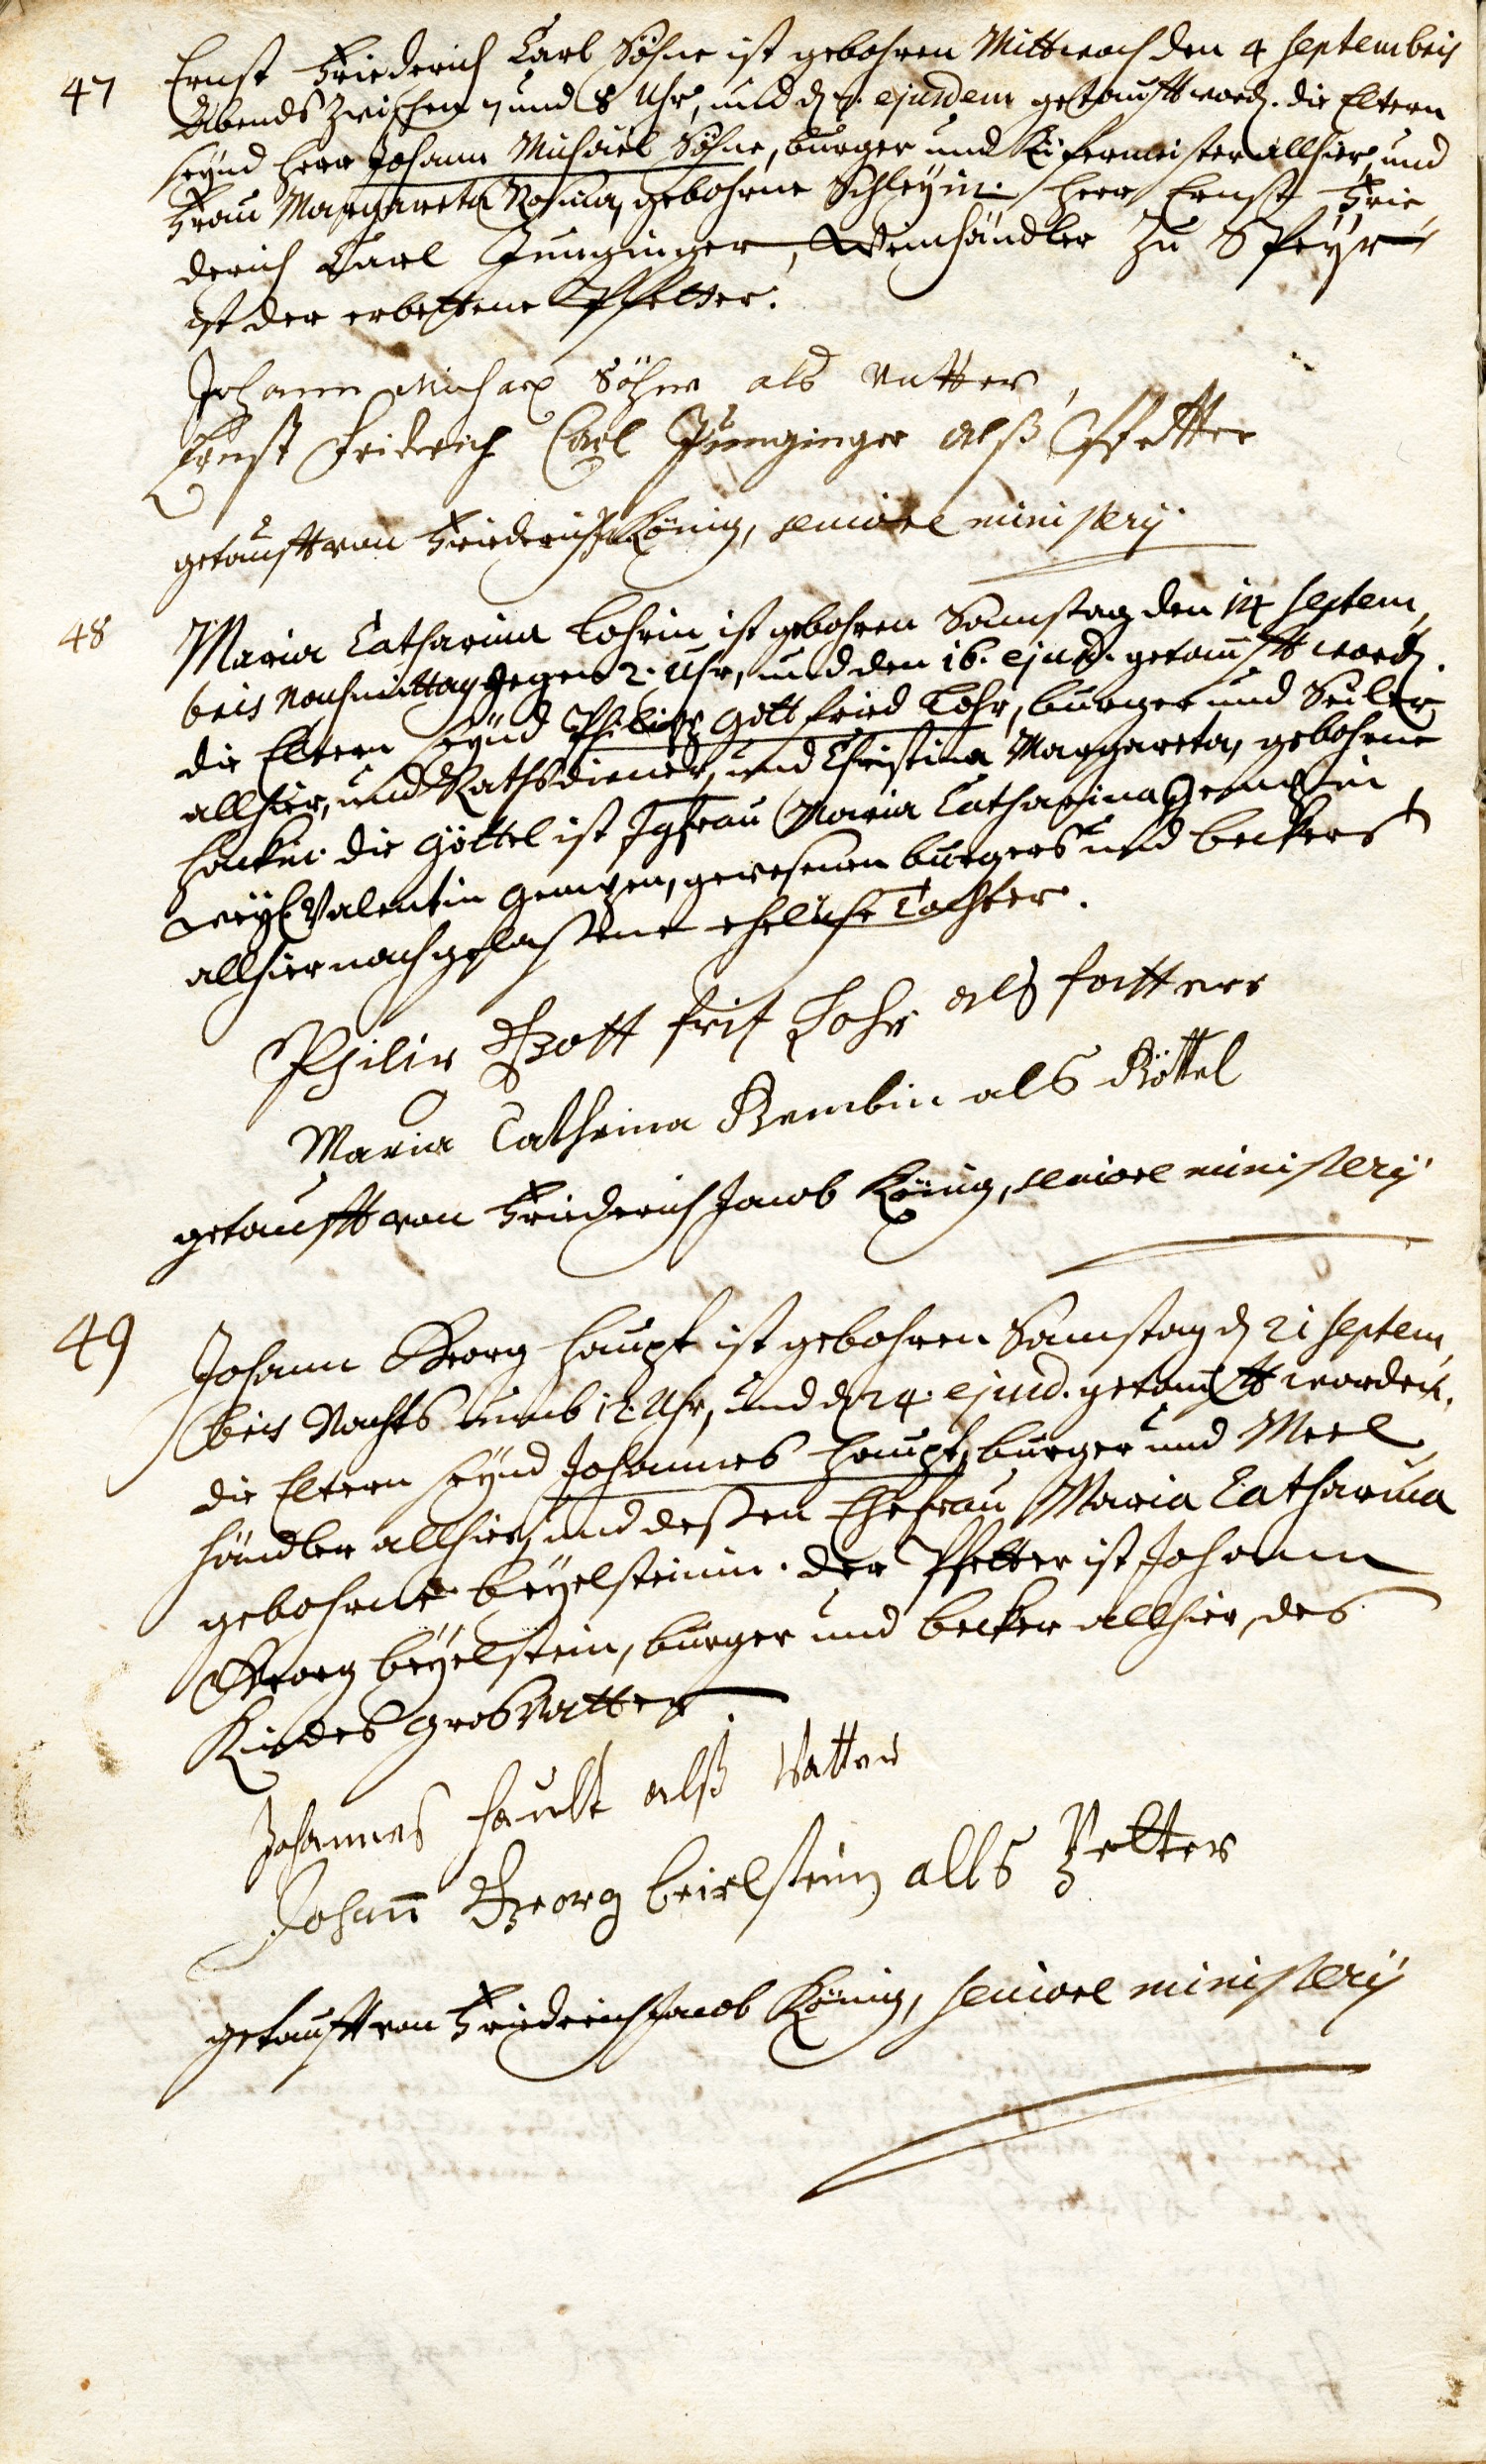 47 Ernst Friederich Carl Söhne ist gebohren Mittwoch den 4 Septembris
Abends zwischen 7 und 8 Uhr, und d. ejusdem getaufft word. die Eltern
seynd Herr Johann Michael Söhne, burger und Kiefermeister allhier, und
Frau Margareta Rosina, gebohrne Schleyin. Herr Ernst Frie
derich Carl Junginger, Weinhändler zu Speyr
ist der erbettene Pfetter.
Johann Michael Söhne als Vatter,
Ernst Fridrich Carl Junginger alß Pfetter
getaufft von Friederich J. König, seniore ministerij.
48 Maria Catharina Lohrin ist gebohren Samstag den 14 Septem,
bris Nachmittag gegen 2. Uhr, und den 16. ejusd. getaufft word.
die Eltern seynd Philipp Gottfried Lohr, burger und Seiler
allhier, und Rathsdiener, und Christina Margareta, gebohrne
Hackin. die Göttel ist Jgfrau Maria Catharina
weyl. Valentin gewesenen burgers und beckers
allhier nachgelaßene eheliche Tochter.
Philip Gott frit Lohr als fatter
Maria Cathrina Gembin als Göttel
getaufft von Friederich Jacob König, seniore ministerij
49 Johann Georg Haupt ist gebohren Samstag d. 21 Septem,
bris Nachts umb 12 Uhr, und d. 24. ejusd. getaufft worden.
die Eltern seynd Johannes Haupt, burger und Meel
händler allhier, und deßen Ehefrau Maria Catharina
gebohrne Beyelsteinin. der Pfetter ist Johann
Georg Beyelstein, burger und becker allhier, des
Kindes Grosvatter.
Johannes Hault alß Vatter
Johan̄ Georg Beielstein alls Petter
getaufft von Friederich Jacob König, seniore ministerij